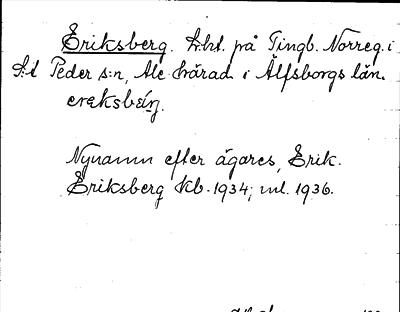 Eriksberg. Lht. på Tingb. Norreg. i
S:t Peder s:n, Ale härad i Älfsborgs län.
ereksbérg.
Nynamn efter ägares, Erik.
Eriksberg Kb. 1934; ml. 1936.